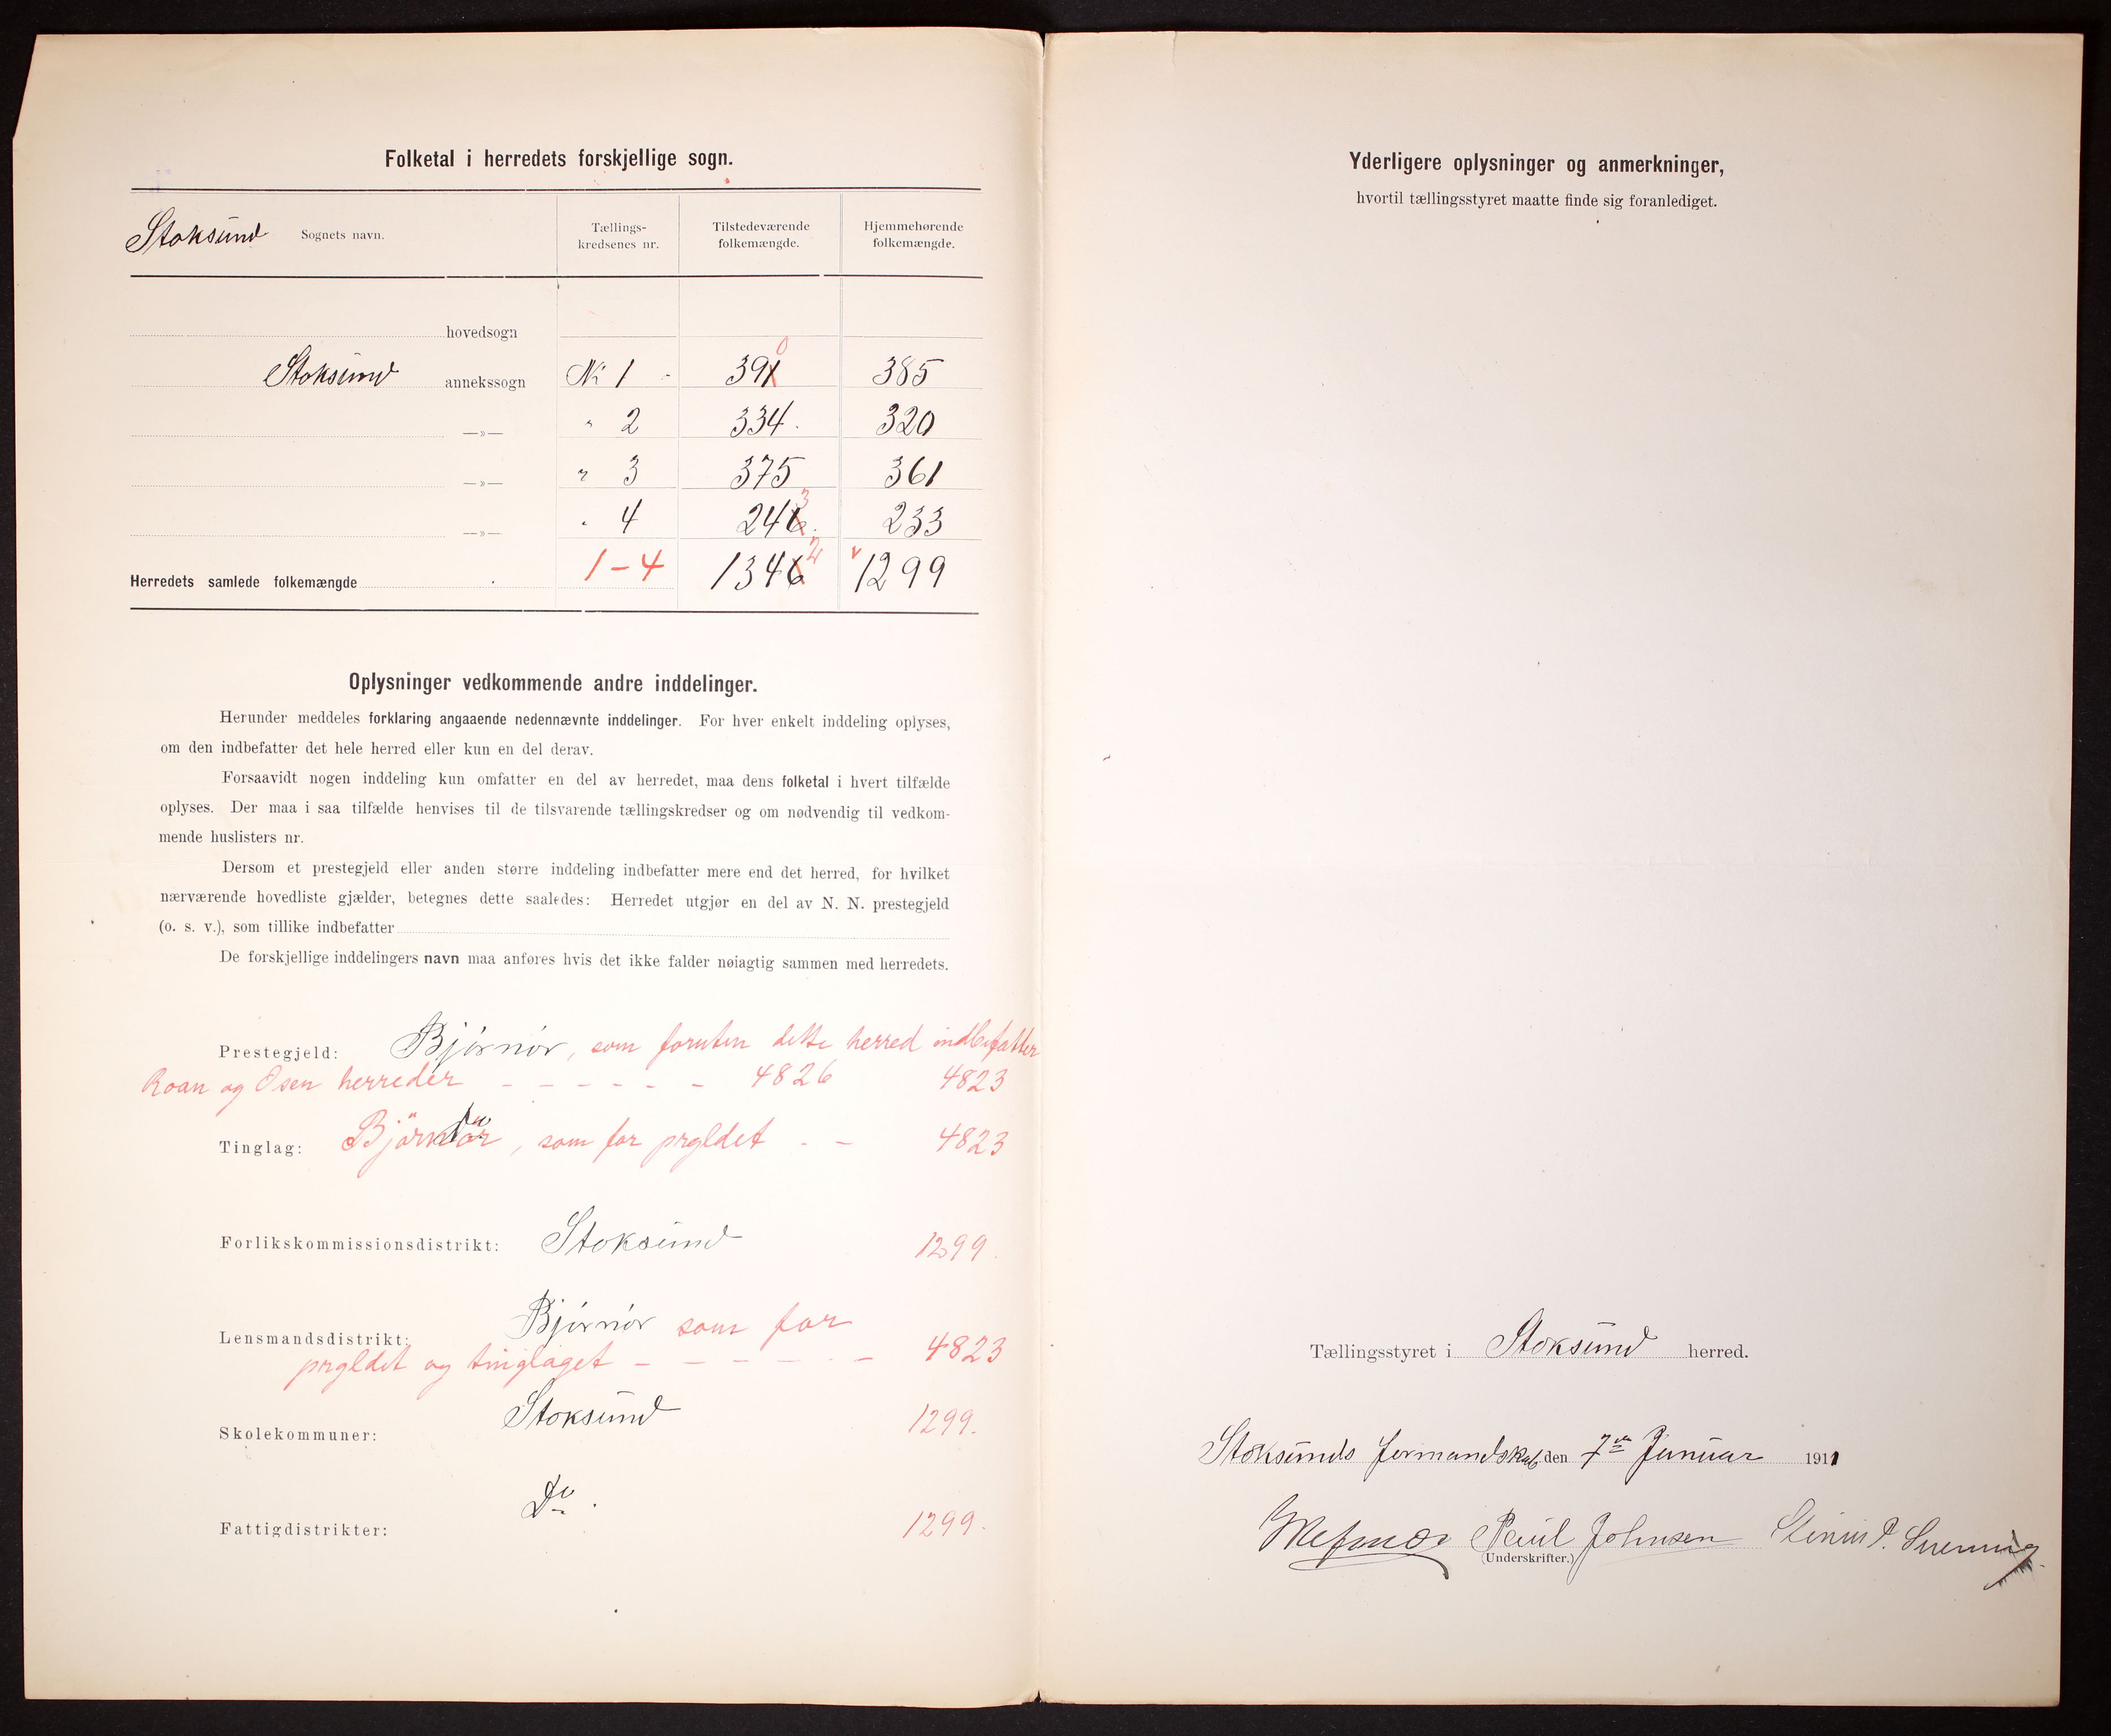 Folketal i herredets forskjellige sogn.
Stoksund Sognets navn. Tællings-kredsenes nr. Tilstedeværende folkemængde. Hjemmehørende folkemængde.
hovedsogn
Stoksund annekssogn Nr 1 - 391 0 385
—»— " 2 334. 320
—»— " 3 375 361
—»— " 4 246. 3 233
Herredets samlede folkemængde 1-4 1346 2 1299
Oplysninger vedkommende andre inddelinger.
Herunder meddeles forklaring angaaende nedennævnte inddelinger. For hver enkelt inddeling oplyses,
om den indbefatter det hele herred eller kun en del derav.
Forsaavidt nogen inddeling kun omfatter en del av herredet, maa dens folketal i hvert tilfælde
oplyses. Der maa i saa tilfælde henvises til de tilsvarende tællingskredser og om nødvendig til vedkom-
mende huslisters nr.
Dersom et prestegjeld eller anden større inddeling indbefatter mere end det herred, for hvilket
nærværende hovedliste gjælder, betegnes dette saaledes: Herredet utgjør en del av N. N. prestegjeld
(o. s. v.), som tillike indbefatter
De forskjellige inddelingers navn maa anføres hvis det ikke falder nøiagtig sammen med herredets.
Prestegjeld: Bjørnør, som foruten dette herred indbefatter
Roan og Osen herreder - - - - - - 4826 4823
Tinglag: Björnör, som for prgldet - - 4823
Forlikskommissionsdistrikt: Stoksund 1299.
Lensmandsdistrikt: Bjørnør som for
prgldet og tinglaget - - - - - - 4823
Skolekommuner: Stoksund 1299.
Fattigdistrikter: Do. 1299.
Yderligere oplysninger og anmerkninger,
hvortil tællingsstyret maatte finde sig foranlediget.
Tællingsstyret i Stoksund herred.
Stoksunds formandskab, den 7de Januar 1911
Paul Johnsen
(Underskrifter.)